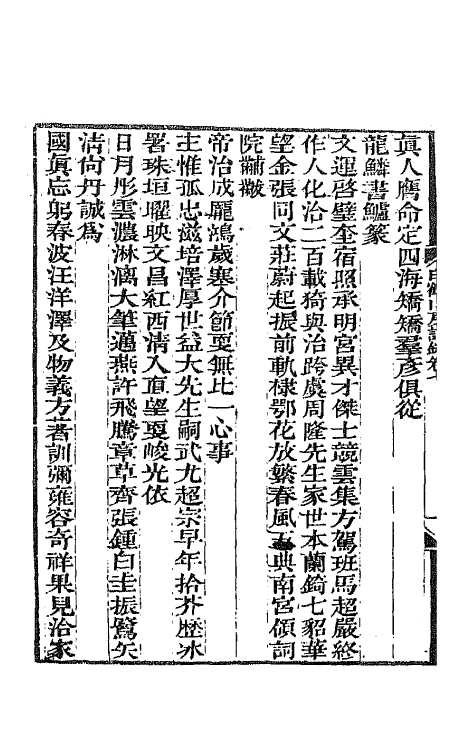 真人膺命定四海矯矯羣彥俱從
龍鱗書鱸篆
文運啓璧奎宿照承明宮異才傑士競雲集方駕班馬超嚴終
作人化治二百載猗與治跨虞周隆先生家世本蘭錡七貂華
望金張同文莊蔚起振前軌棣鄂花放繁春風五典南宮領詞
院黼黻
帝治成龎鴻歲寒介節敻無比一心事
主惟孤忠滋培澤厚世益大先生嗣武尤超宗早年拾芥歷冰
署珠垣曜映文昌紅西清入直望敻峻光依
日月彤雲濃淋漓大筆邁燕許飛騰章草齊張鍾白圭振鷺矢
清尙丹誠爲
國眞忘躬春波汪洋澤及物義方著訓彌雍容奇祥果見治家